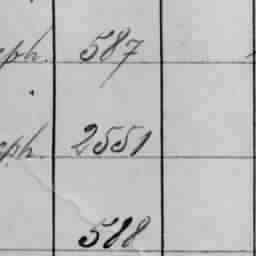 ph. 587
ph. 2551
588